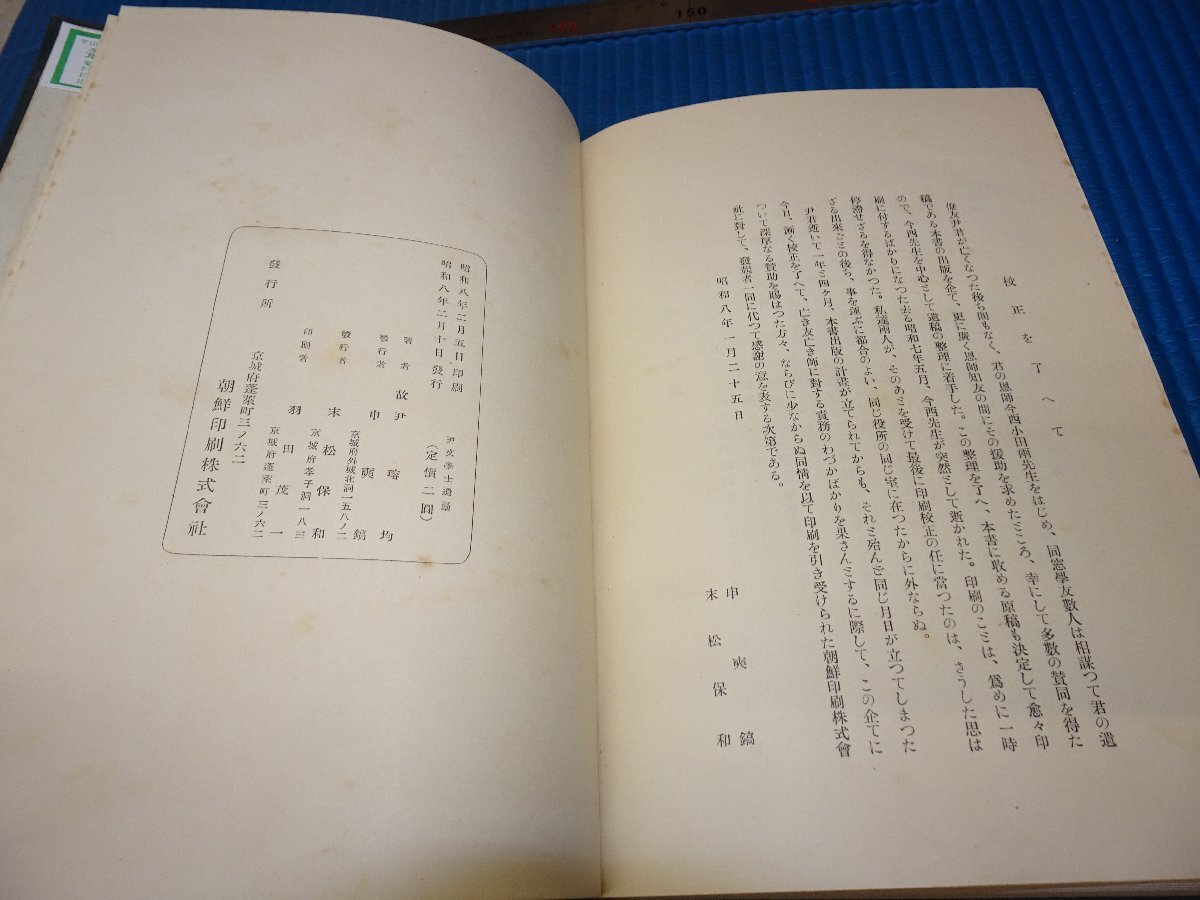 校正を了へて
僚友尹君が亡くなつた後ち間もなく、君の恩師今西小田兩先生をはじめ、同窓學友數人は相謀つて君の遺
稿である本書の出版を企て、更に廣く恩師知友の間にその援助を求めたところ、幸にして多數の賛同を得た
ので、今西先生を中心として遺稿の整理に着手した。この整理を了へ、本書に收める原稿も決定して愈々印
刷に付するばかりになつた去る昭和七年五月、今西先生が突然として逝かれた。印刷のことは、爲めに一時
停滯せざるを得なかつた。私達兩人が、そのあとを受けて最後に印刷校正の任に當つたのは、さうした思は
ざる出來ごとの後ち、事を運ぶに都合のよい、同じ役所の同じ室に在つたからに外ならぬ。
尹君逝いて一年と四ケ月、本書出版の計畫が立てられてからも、それと殆んど同じ月日が立つてしまつた
今日、漸く校正を了へて、亡き友亡き師に對する責務のわづかばかりを果さんとするに際して、この企てに
ついて深厚なる賛助を賜はつた方々、ならびに少なからぬ同情を以て印刷を引き受けられた朝鮮印刷株式會
社に對して、發起者一同に代つて感謝の意を表する次第である。
昭和八年一月二十五日
申奭鎬
末松保和
昭和八年二月五日印刷
昭和八年二月十日發行
尹文學士遺藁
(定價二圓)
著者 故 尹瑢均
京城府外城北洞一五八ノ二
發行者 申奭鎬
京城府孝子洞一八三
發行者 末松保和
京城府蓬萊町三ノ六二
印刷者 羽田茂一
京城府蓬萊町三ノ六二
發行所 朝鮮印刷株式會社
150